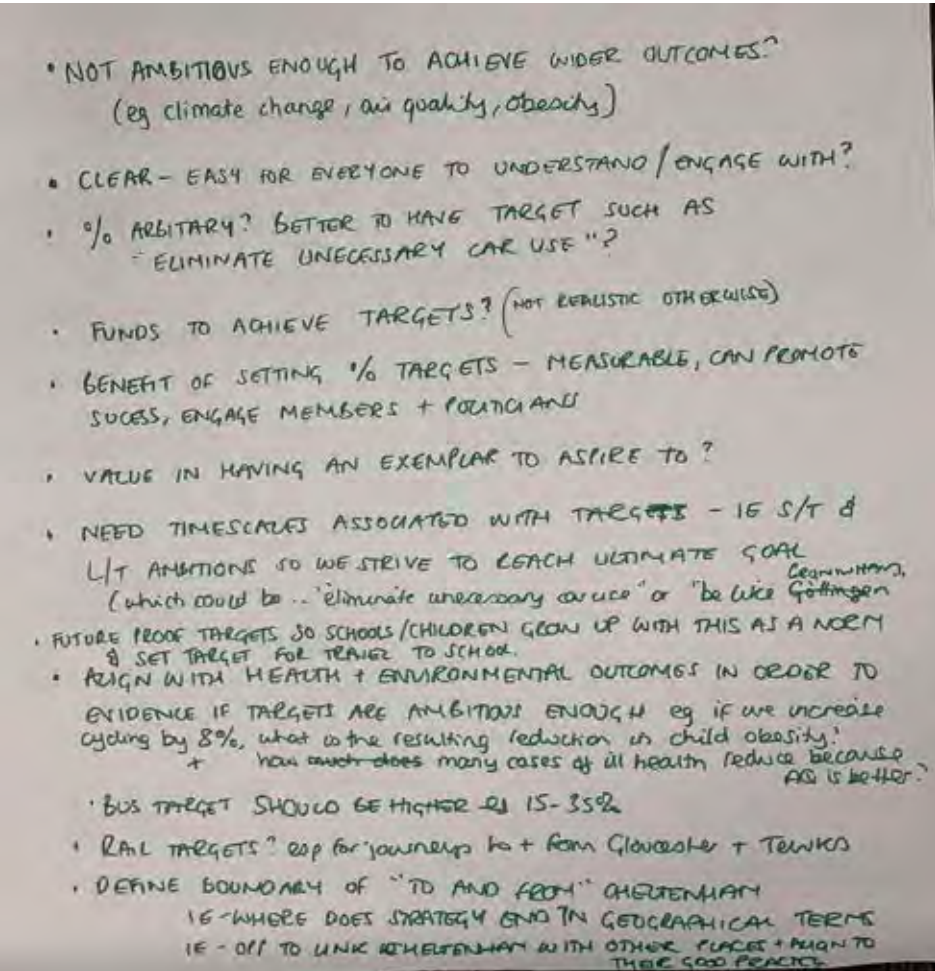 • NOT AMBITIOUS ENOUGH TO ACHIEVE WIDER OUTCOMES?
(eg climate change, air quality, obesity)
• CLEAR - EASY FOR EVERYONE TO UNDERSTAND / ENGAGE WITH?
• % ARBITARY? BETTER TO HAVE TARGET SUCH AS
"ELIMINATE UNECESSARY CAR USE"?
• FUNDS TO ACHIEVE TARGETS? (NOT REALISTIC OTHERWISE)
• BENEFIT OF SETTING % TARGETS - MEASURABLE, CAN PROMOTE
SUCESS, ENGAGE MEMBERS + POLITICIANS
• VALUE IN HAVING AN EXEMPLAR TO ASPIRE TO?
• NEED TIMESCALES ASSOCIATED WITH TARGETS - IE S/T &
L/T AMBITIONS SO WE STRIVE TO REACH ULTIMATE GOAL
(which could be.. "eliminate unecessary car use" or "be like Göttingen
• FUTURE PROOF TARGETS SO SCHOOLS/CHILDREN GROW UP WITH THIS AS A NORM
& SET TARGET FOR TRAVEL TO SCHOOL.
• ALIGN WITH HEALTH + ENVIRONMENTAL OUTCOMES IN ORDER TO
EVIDENCE IF TARGETS ARE AMBITIOUS ENOUGH eg if we increase
cycling by 8%, what is the resulting reduction in child obesity?
+ how much does many cases of ill health reduce because
AQ is better?
• BUS TARGET SHOULD BE HIGHER eg 15-35%
• RAIL TARGETS? esp for journeys to + from Gloucester + Tewks
• DEFINE BOUNDARY OF "TO AND FROM" CHELTENHAM
IE - WHERE DOES STRATEGY END IN GEOGRAPHICAL TERMS
IE - OPP TO LINK CHELTENHAM WITH OTHER PLACES + ALIGN TO
THEIR GOOD PRACTICE